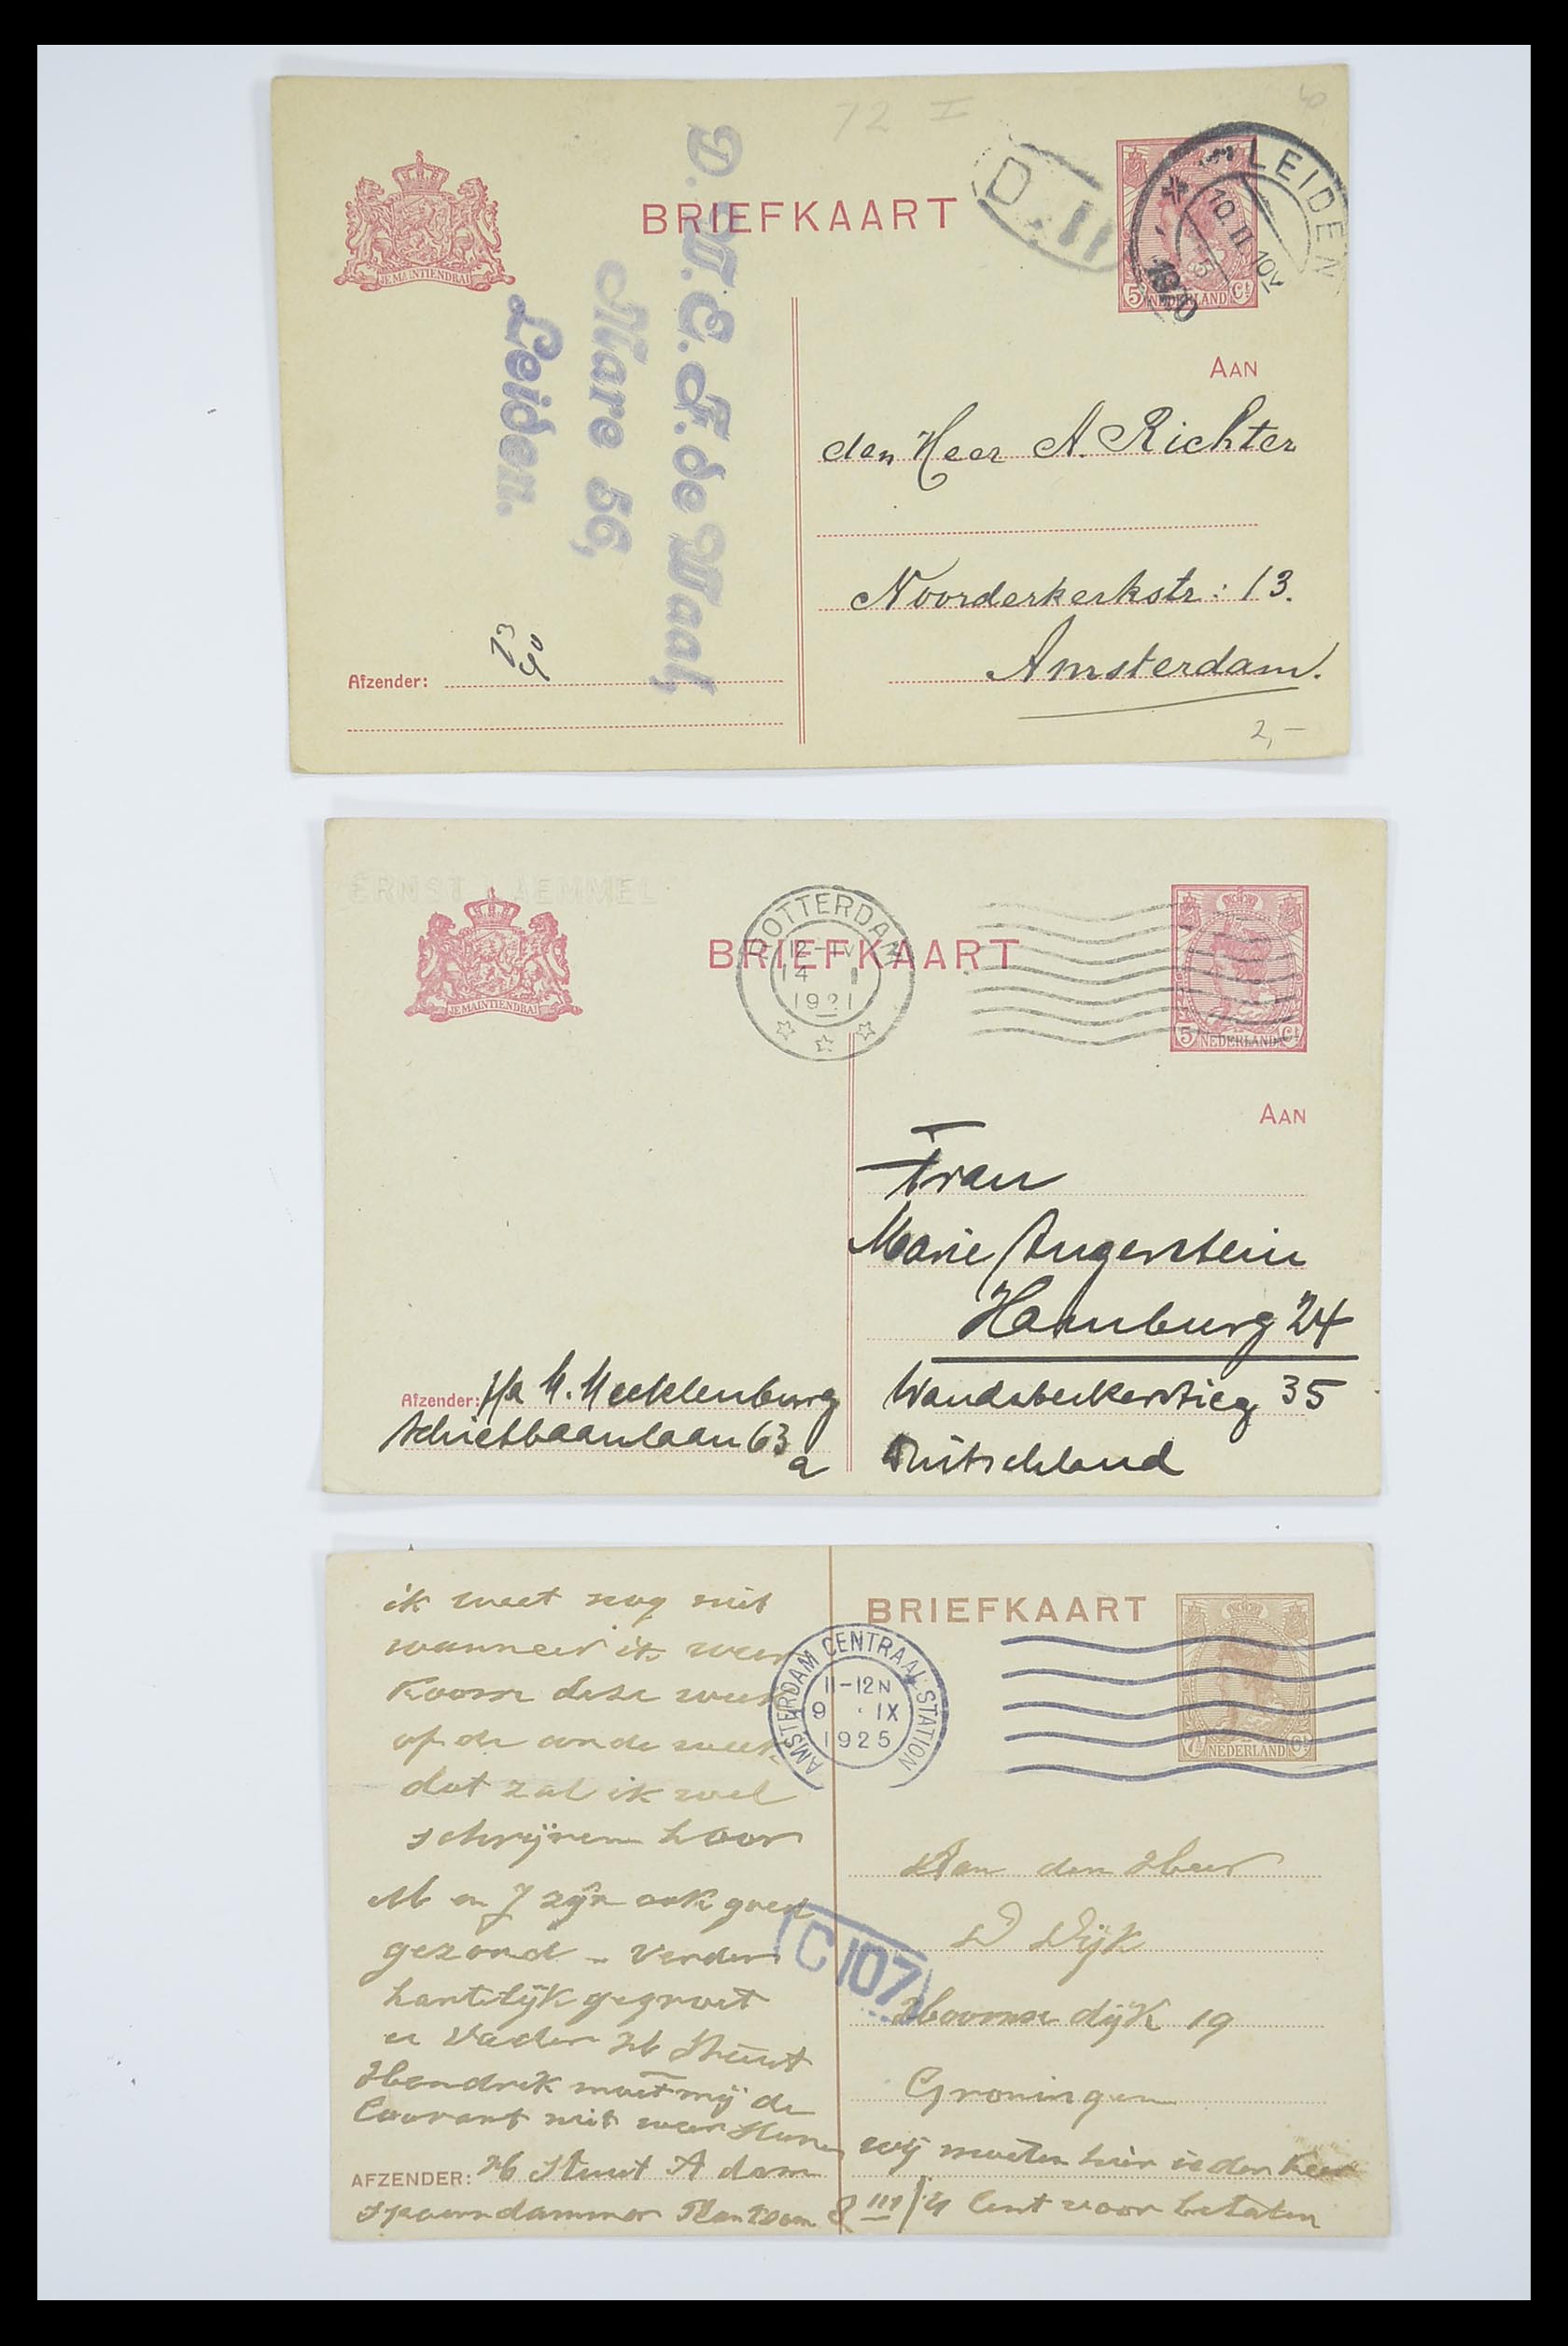 72 I
6
JE MAINTIENDRAI
BRIEFKAART
D.11
LEIDEN
10.II.10V
1920
5 NEDERLAND Ct
D.W.E.F. de Waal,
Mare 56,
Leiden.
AAN
den Heer A. Richter
Noorderkerkstr: 13.
Amsterdam.
Afzender:
2,-
ERNST LAEMMEL
JE MAINTIENDRAI
BRIEFKAART
ROTTERDAM
12-IV
14 I
1921
5 NEDERLAND Ct
AAN
Frau
Marie Angerstein
Hamburg 24
Wandsbeckerstieg 35
Duitschland
Afzender: p/a M. Mecklenburg
Schietbaanlaan 63
a
BRIEFKAART
AMSTERDAM CENTRAAL STATION
11-12N
9 IX
1925
7½ NEDERLAND Ct
ik weet nog niet
wanneer ik weer
Koom deze week
of de ande week
dat zal ik wel
schrijven hoor
M en J zijn ook goed
gezond - verder
hartelijk gegroet
u Vader H Stuut
Hendrik moet mij de
Courant niet meer sturen
wij moeten hier ieder keer
4 Cent voor betalen
C 107
Aan den Heer
D Dijk
Hoornse dijk 19
Groningen
AFZENDER: H Stuut A dam
Spaarndammer Plantsoen 8 III